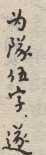 为隊伍字遂